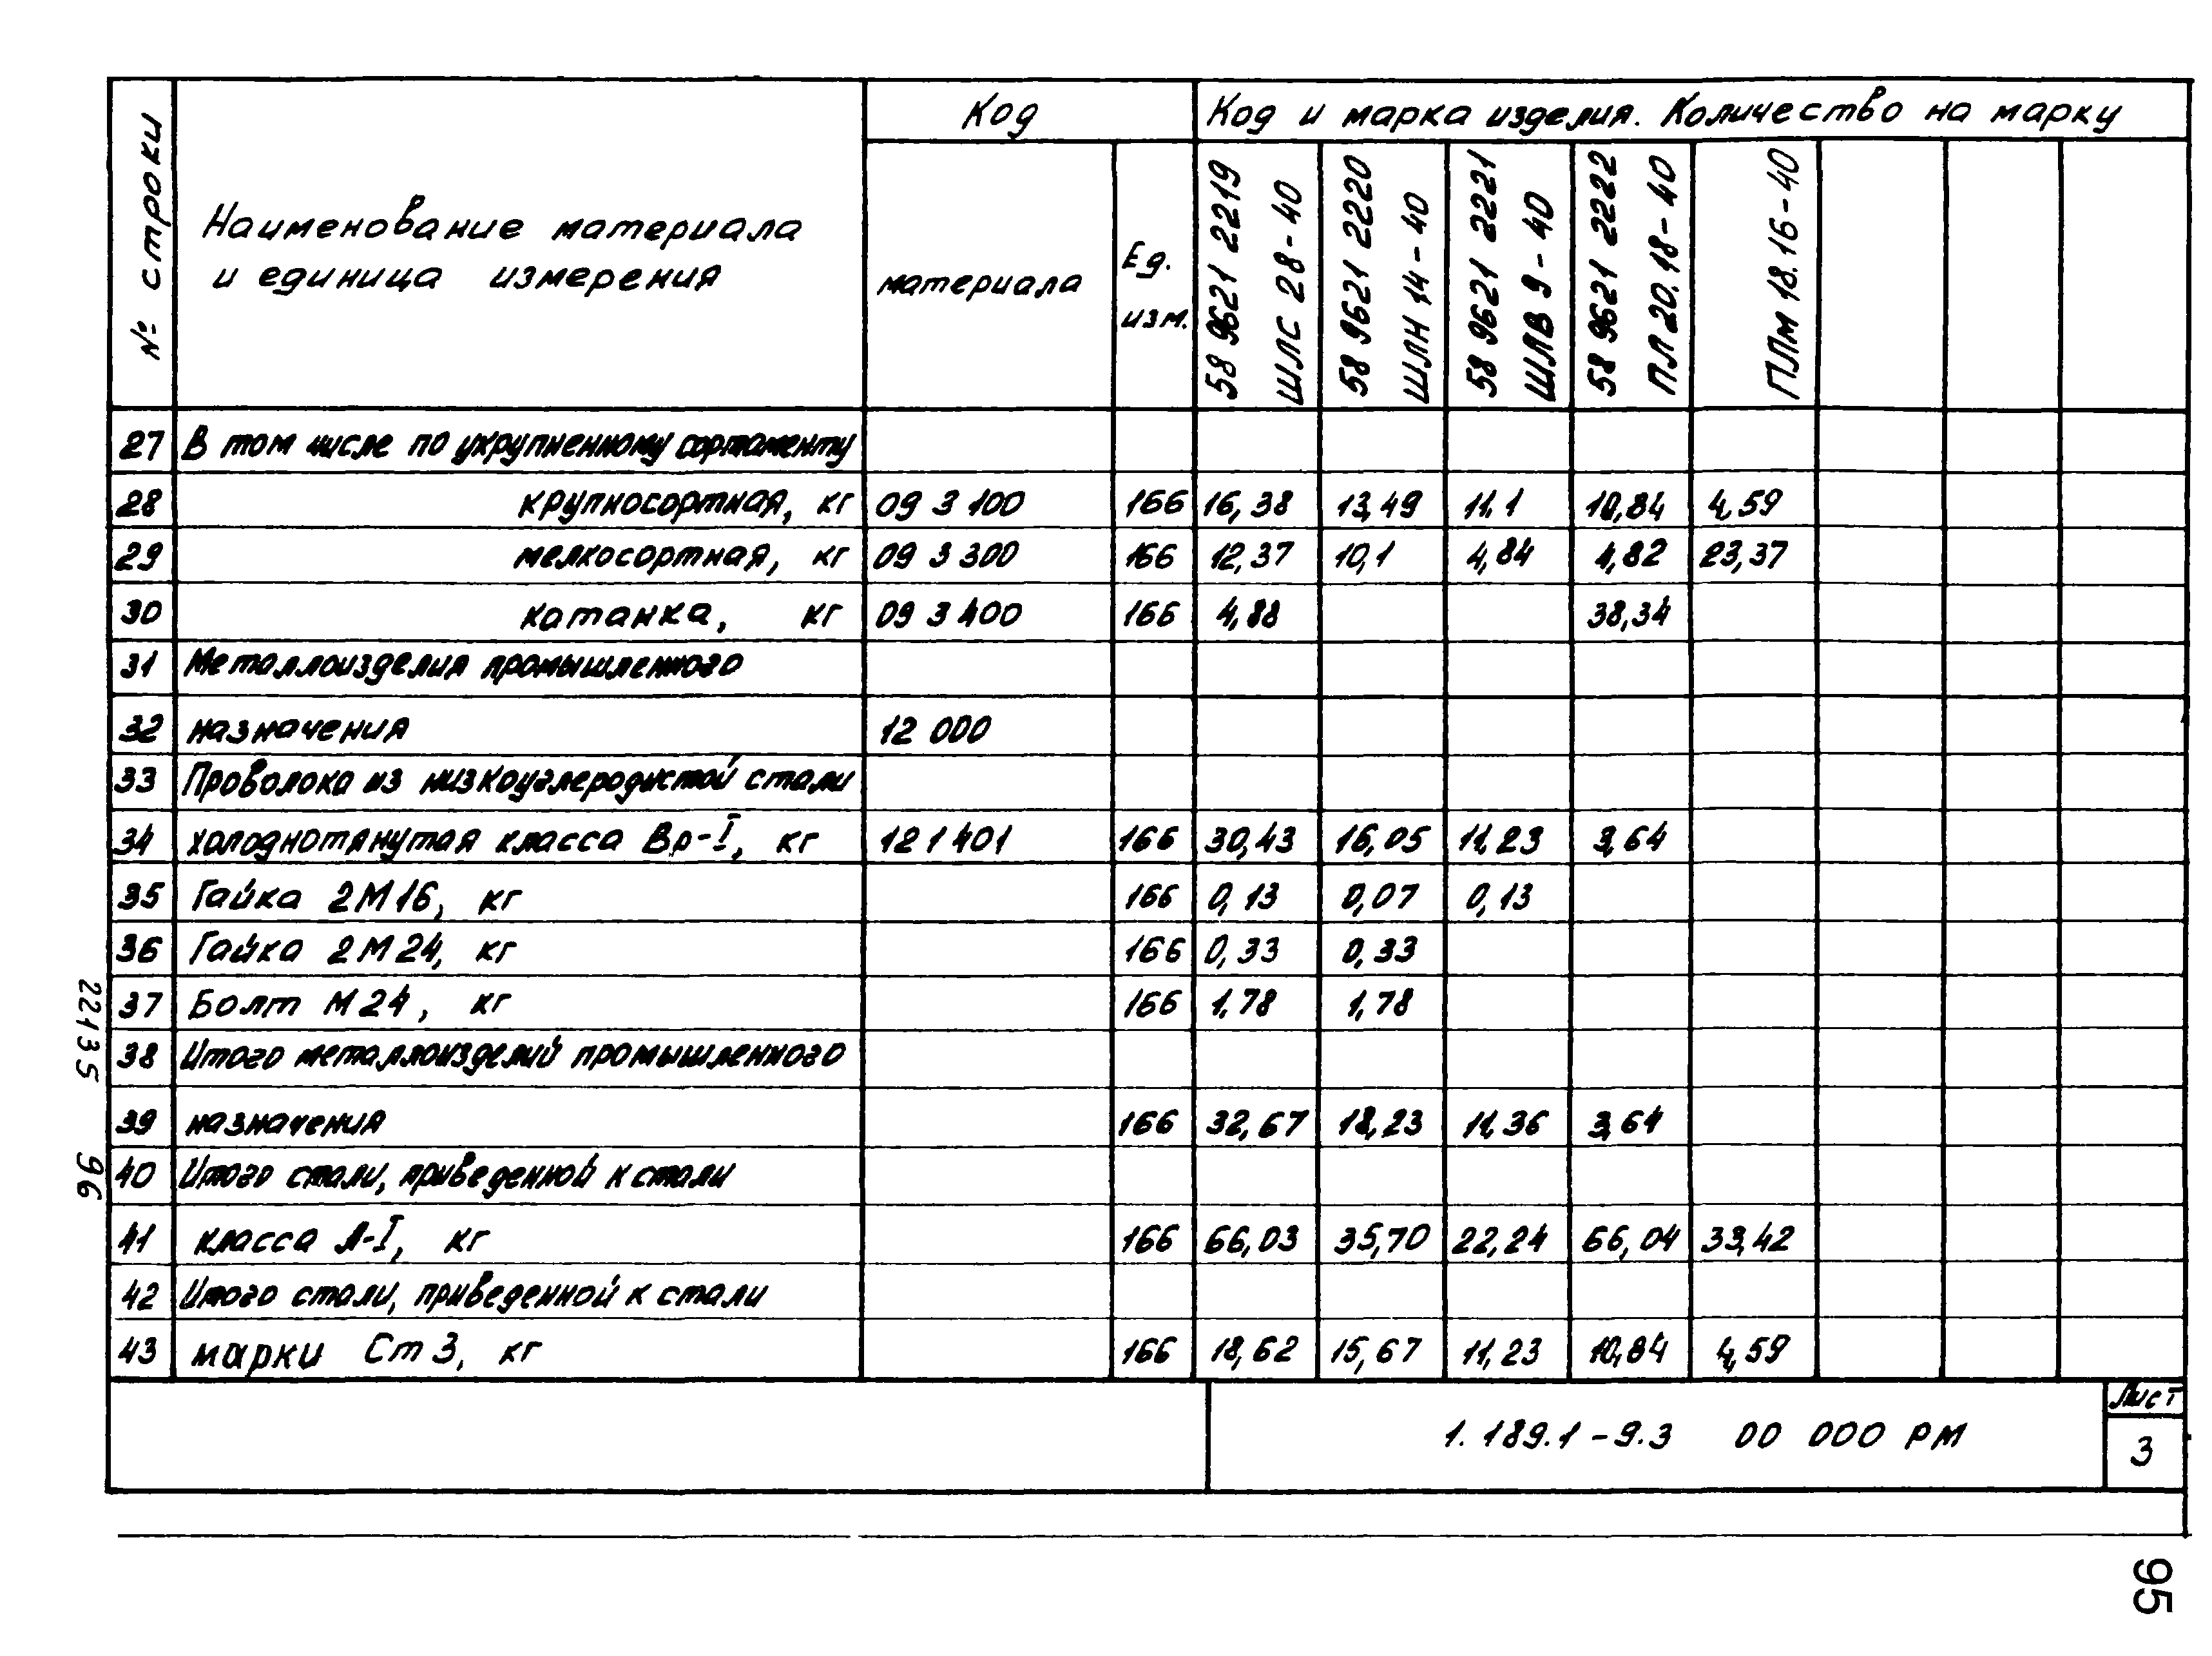 № строки
Наименование материала
и единица измерения
Код
материала
Ед.
изм.
Код и марка изделия. Количество на марку
58 9621 2219
ШЛС 28-40
58 9621 2220
ШЛН 14-40
58 9621 2221
ШЛВ 9-40
58 9621 2222
ПЛ 20.18-40
ПЛм 18.16-40
27 В том числе по укрупненному сортаменту
28 крупносортная, кг 09 3 100 166 16,38 13,49 11,1 10,84 4,59
29 мелкосортная, кг 09 3 300 166 12,37 10,1 4,84 4,82 23,37
30 катанка, кг 09 3 400 166 4,88 38,34
31 Металлоизделия промышленного
32 назначения 12 000
33 Проволока из низкоуглеродистой стали
34 холоднотянутая класса Вр-I, кг 12 1 401 166 30,43 16,05 11,23 3,64
35 Гайка 2М16, кг 166 0,13 0,07 0,13
36 Гайка 2М24, кг 166 0,33 0,33
37 Болт М24, кг 166 1,78 1,78
38 Итого металлоизделий промышленного
39 назначения 166 32,67 18,23 11,36 3,64
40 Итого стали, приведенной к стали
41 класса А-I, кг 166 66,03 35,70 22,24 66,04 33,42
42 Итого стали, приведенной к стали
43 марки Ст 3, кг 166 18,62 15,67 11,23 10,84 4,59
22135 96
1.189.1-9.3 00 000 РМ
Лист
3
95